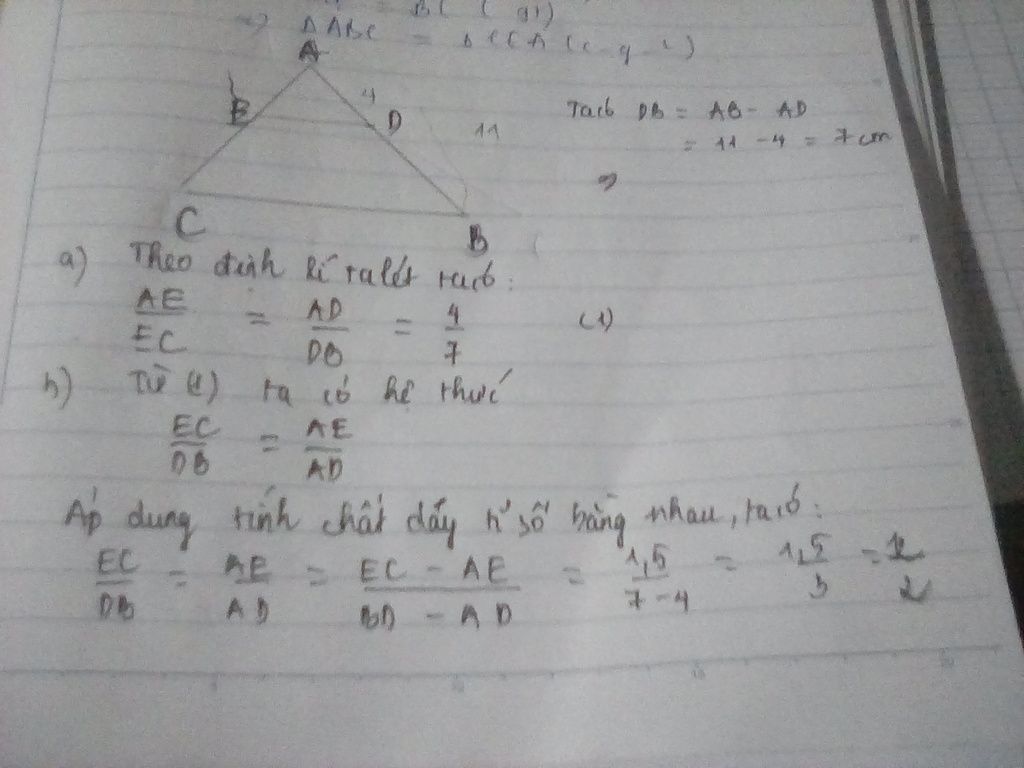 = BC ( gt)
=> ΔABC = (c - g - c)
A
E
4
D
11
C
B
Ta có DB = AB - AD
= 11 - 4 = 7 cm
=>
a) Theo định lí talét ta có :
AE/EC = AD/DB = 4/7 (1)
b) Từ (1) ta có hệ thức
EC/DB = AE/AD
Áp dụng tính chất dãy tỉ số bằng nhau, ta có :
EC/DB = AE/AD = EC - AE/BD - AD = 1,5/7-4 = 1,5/3 = 1/2